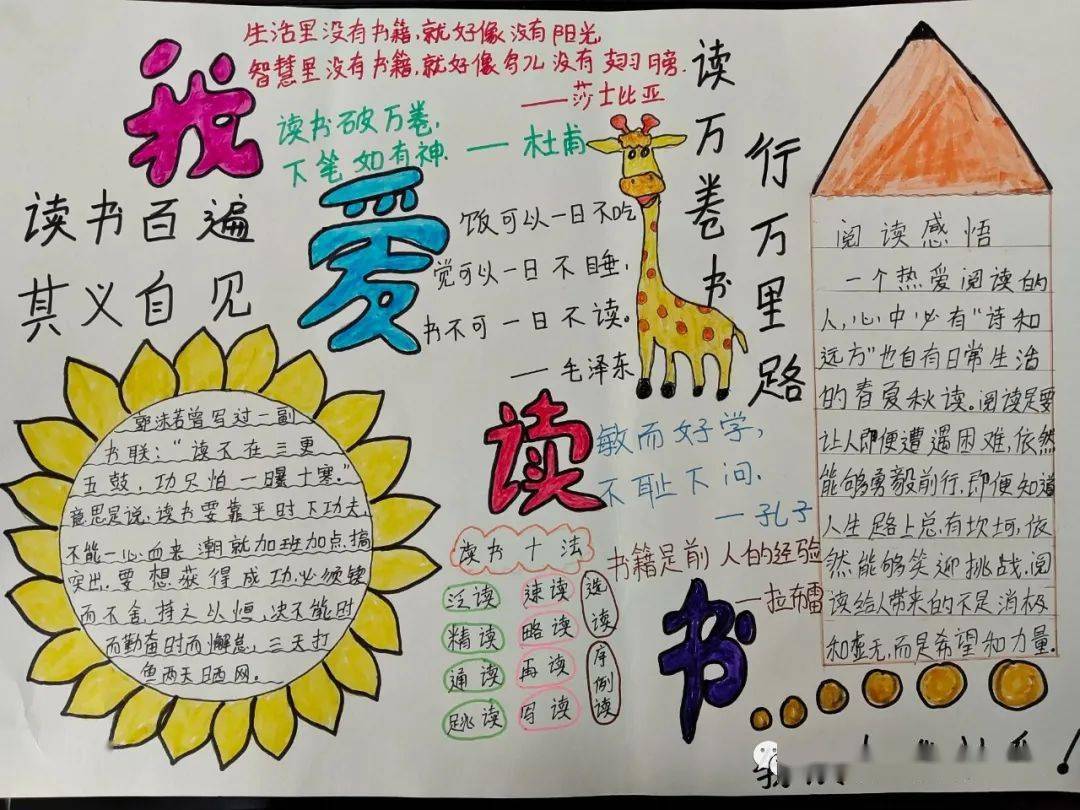 生活里没有书籍,就好像没有阳光,
智慧里没有书籍,就好像鸟儿没有翅膀.
——莎士比亚
我
读书破万卷,
下笔如有神. —杜甫
读书百遍
其义自见
爱
饭可以一日不吃
觉可以一日不睡,
书不可一日不读。
——毛泽东
读万卷书
行万里路
阅读感悟
一个热爱阅读的
人,心中必有“诗和
远方”也自有日常生活
的春夏秋读。阅读足要
让人即便遭遇困难,依然
能够勇毅前行,即便知道
人生路上总有坎坷,依
然能够笑迎挑战,阅
读给人带来的不是消极
和虚无,而是希望和力量。
郭沫若曾写过一副
书联:“读不在三更
五鼓,功只怕一曝十寒。”
意思是说,读书要靠平时下功夫,
不能一心血来潮就加班加点,搞
突出.要想获得成功,必须锲
而不舍,持之以恒,决不能时
而勤奋时而懈怠,三天打
鱼两天晒网。
读
敏而好学,
不耻下问.
—孔子
读书十法
泛读
精读
通读
跳读
速读
略读
再读
写读
选读
序例读
书籍是前人的经验
—拉布雷
书